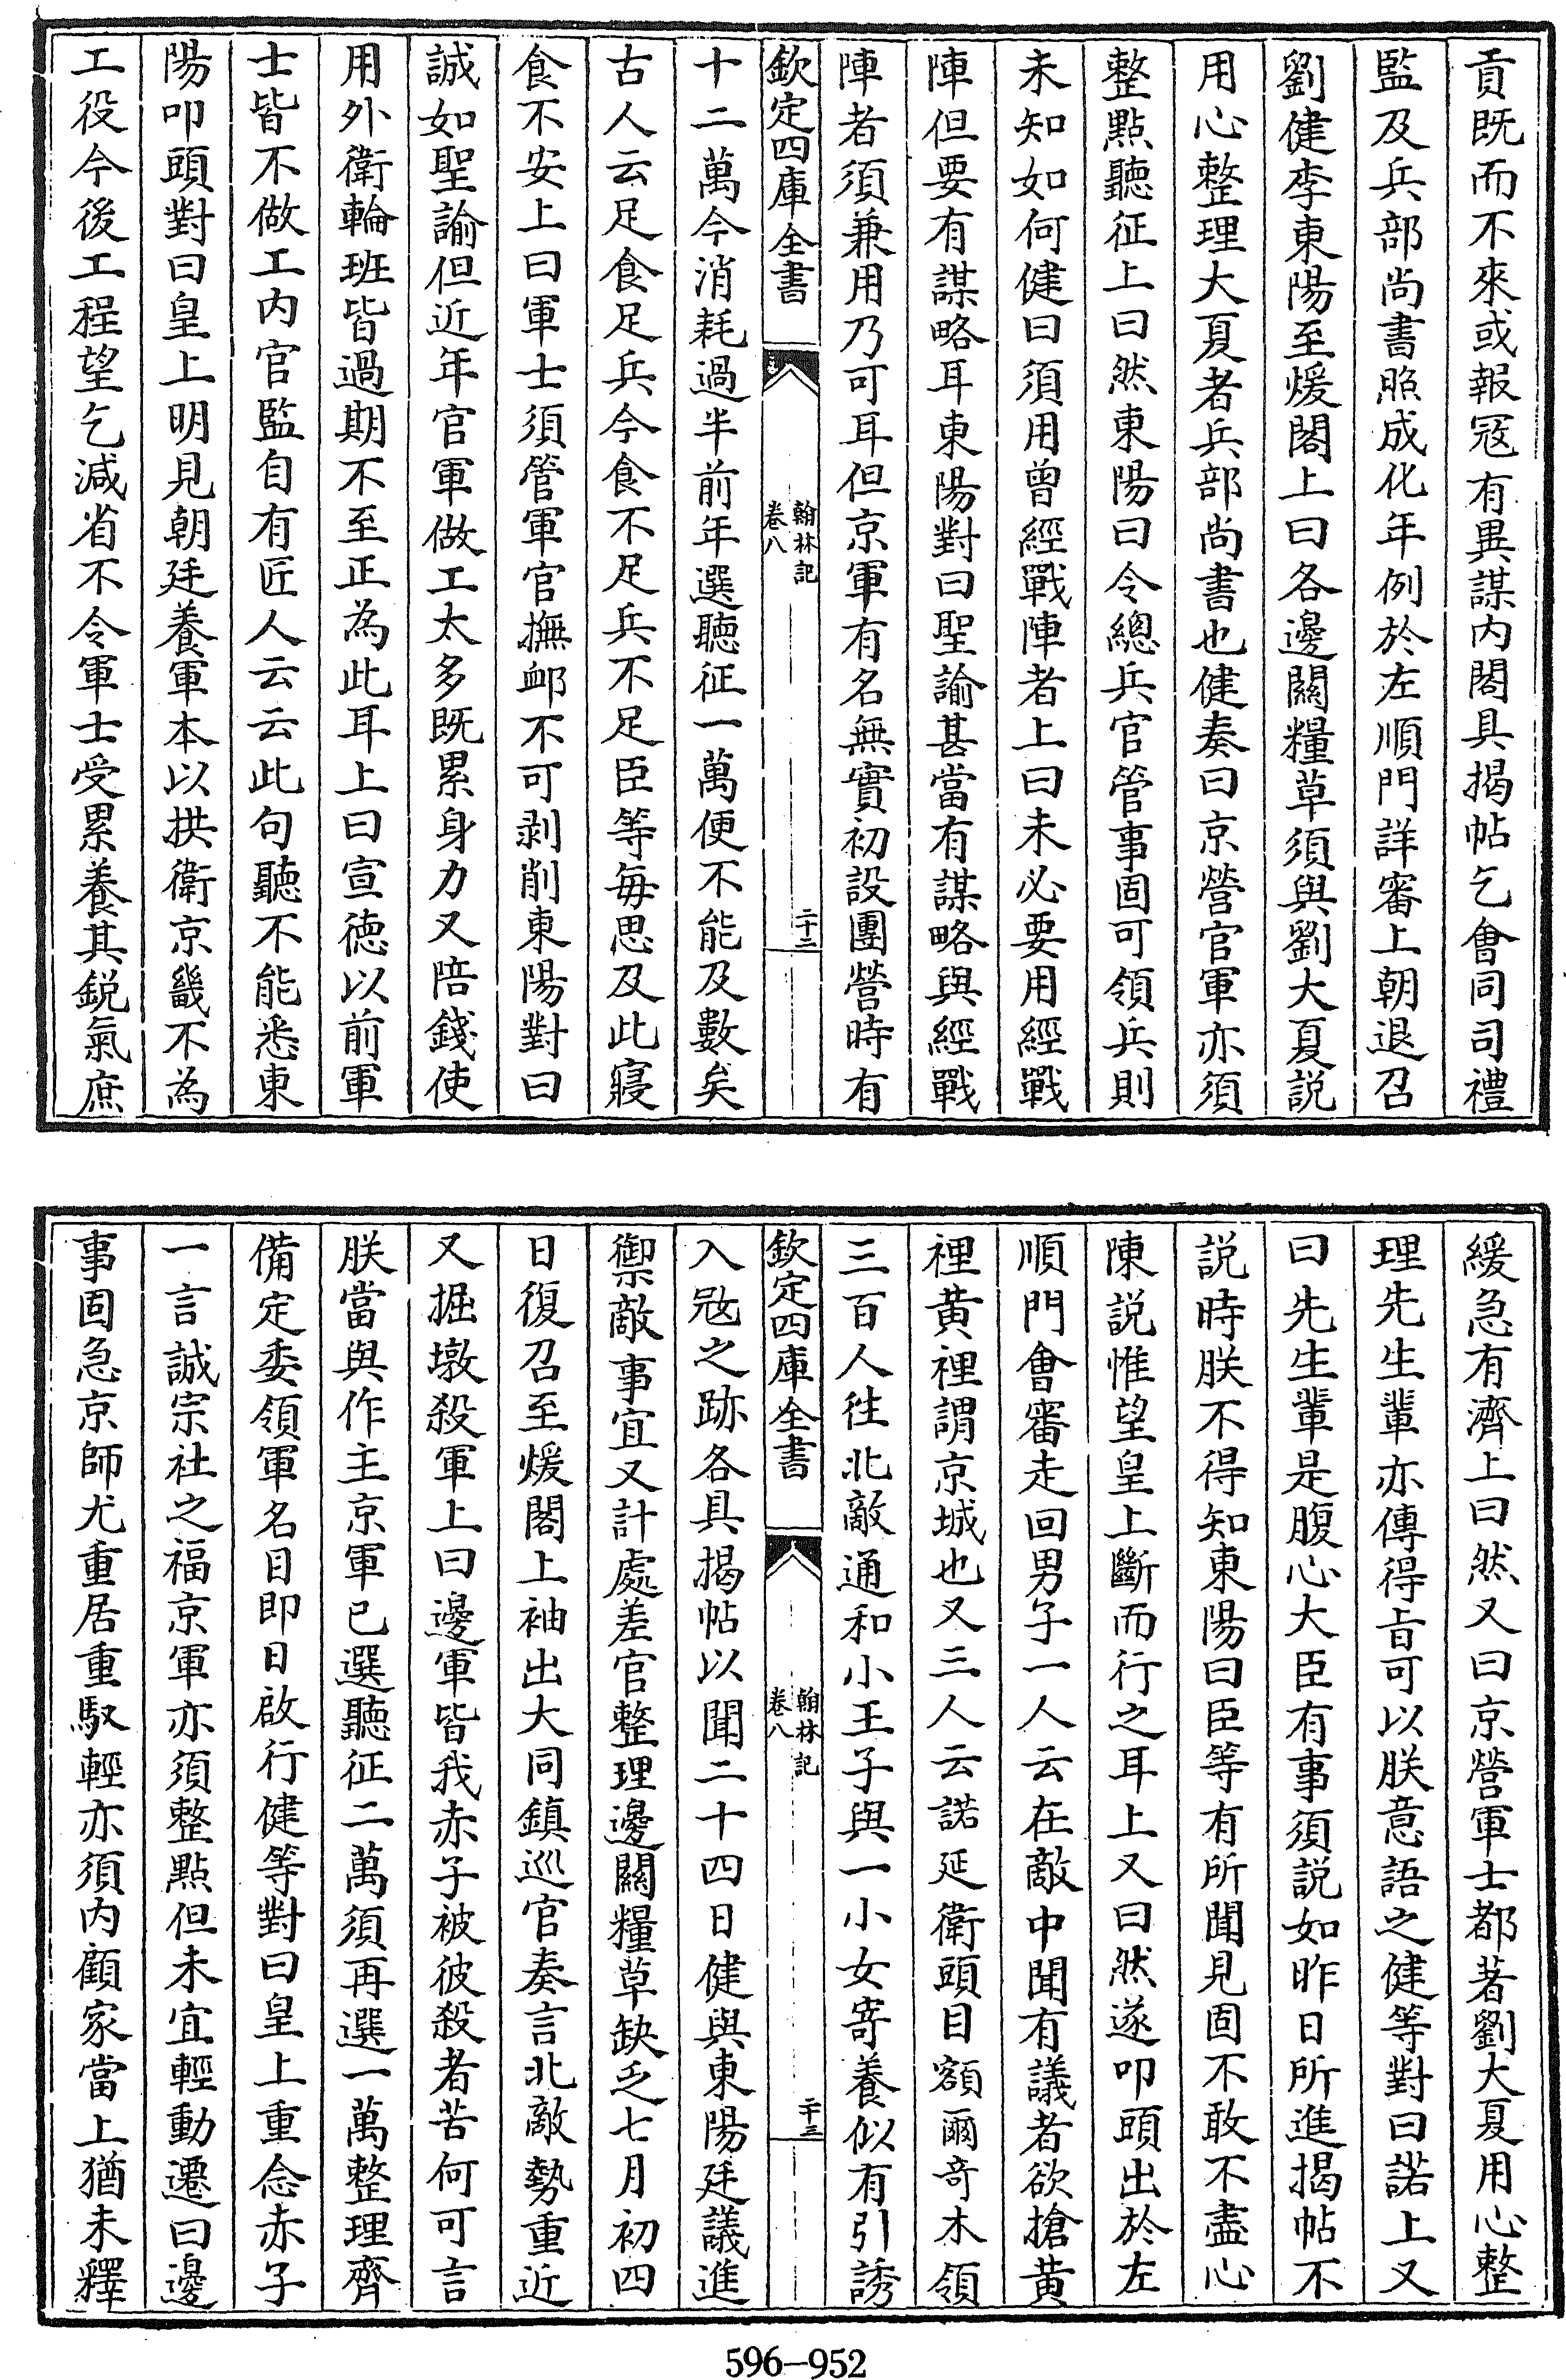 貢既而不來或報冦有異謀内閣具揭帖乞會同司禮
監及兵部尚書照成化年例於左順門詳審上朝退召
劉健李東陽至煖閣上曰各邊關糧草須與劉大夏説
用心整理大夏者兵部尚書也健奏曰京營官軍亦須
整點聽征上曰然東陽曰令總兵官管事固可領兵則
未知如何健曰須用曾經戰陣者上曰未必要用經戰
陣但要有謀略耳東陽對曰聖諭甚當有謀略與經戰
陣者須兼用乃可耳但京軍有名無實初設團營時有
欽定四庫全書
翰林記
卷八
二十二
十二萬今消耗過半前年選聽征一萬便不能及數矣
古人云足食足兵今食不足兵不足臣等每思及此寢
食不安上曰軍士須管軍官撫卹不可剥削東陽對曰
誠如聖諭但近年官軍做工太多既累身力又陪錢使
用外衛輪班皆過期不至正為此耳上曰宣徳以前軍
士皆不做工内官監自有匠人云云此句聽不能悉東
陽叩頭對曰皇上明見朝廷養軍本以拱衛京畿不為
工役今後工程望乞減省不令軍士受累養其鋭氣庶
緩急有濟上曰然又曰京營軍士都著劉大夏用心整
理先生輩亦傳得㫖可以朕意語之健等對曰諾上又
曰先生輩是腹心大臣有事須説如昨日所進揭帖不
説時朕不得知東陽曰臣等有所聞見固不敢不盡心
陳説惟望皇上斷而行之耳上又曰然遂叩頭出於左
順門會審走回男子一人云在敵中聞有議者欲搶黄
裡黄裡謂京城也又三人云諾延衛頭目額爾竒木領
三百人往北敵通和小王子與一小女寄養似有引誘
欽定四庫全書
翰林記
卷八
二十三
入冦之跡各具揭帖以聞二十四日健與東陽廷議進
禦敵事宜又計處差官整理邊關糧草缺乏七月初四
日復召至煖閣上袖出大同鎮巡官奏言北敵勢重近
又掘墩殺軍上曰邊軍皆我赤子被彼殺者苦何可言
朕當與作主京軍已選聽征二萬須再選一萬整理齊
備定委領軍名目即日啟行健等對曰皇上重念赤子
一言誠宗社之福京軍亦須整點但未宜輕動遷曰邊
事固急京師尤重居重馭輕亦須内顧家當上猶未釋
596-952